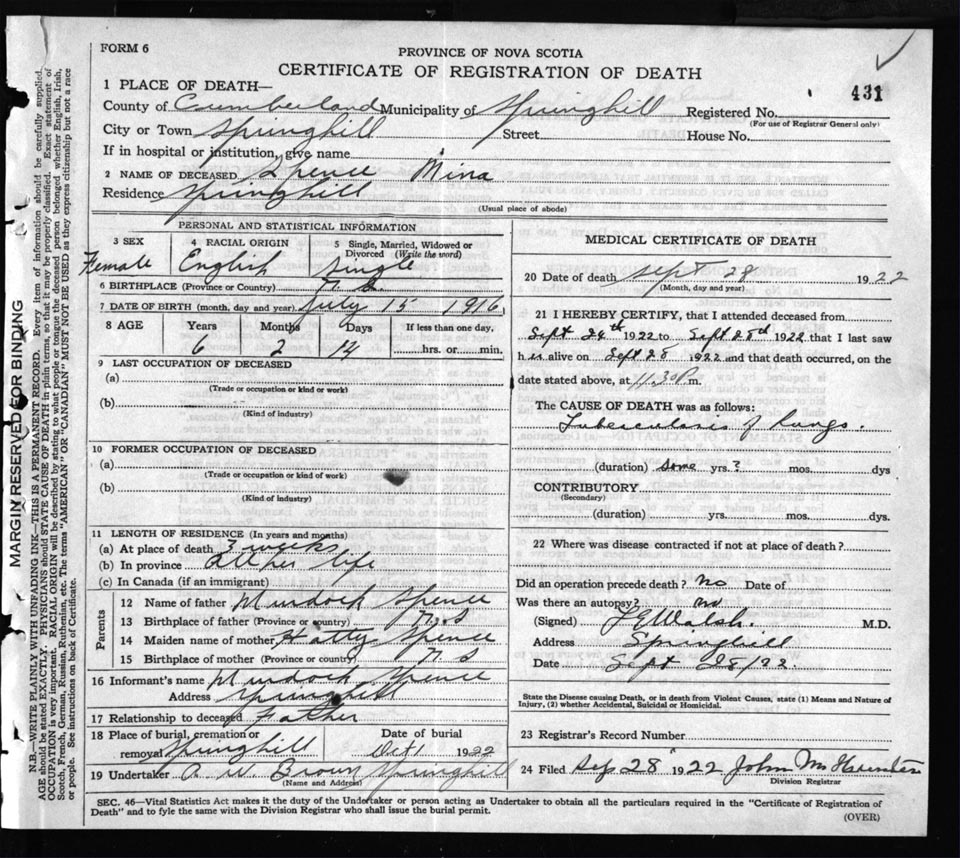 FORM 6
PROVINCE OF NOVA SCOTIA
CERTIFICATE OF REGISTRATION OF DEATH
431
1 PLACE OF DEATH—
County of Cumberland Municipality of Springhill Registered No.
(For use of Registrar General only)
City or Town Springhill Street House No.
If in hospital or institution, give name
2 NAME OF DECEASED Spence Mina
Residence Springhill
(Usual place of abode)
PERSONAL AND STATISTICAL INFORMATION
3 SEX 4 RACIAL ORIGIN 5 Single, Married, Widowed or Divorced (Write the word)
Female English Single
6 BIRTHPLACE (Province or Country) N. S.
7 DATE OF BIRTH (month, day and year) July 15 1916
8 AGE Years Months Days If less than one day,
6 2 14 hrs. or min.
9 LAST OCCUPATION OF DECEASED
(a)
(Trade or occupation or kind or work)
(b)
(Kind of industry)
10 FORMER OCCUPATION OF DECEASED
(a)
(Trade or occupation or kind of work)
(b)
(Kind of industry)
11 LENGTH OF RESIDENCE (In years and months)
(a) At place of death 3 weeks
(b) In province All her life
(c) In Canada (if an immigrant)
Parents
12 Name of father Murdock Spence
13 Birthplace of father (Province or country) N. S
14 Maiden name of mother Hatty Spence
15 Birthplace of mother (Province or country) N S
16 Informant's name Murdock Spence
Address Springhill
17 Relationship to deceased Father
18 Place of burial, cremation or removal Springhill Date of burial Oct 1 1922
19 Undertaker A. W. Brown Springhill
(Name and Address)
MEDICAL CERTIFICATE OF DEATH
20 Date of death Sept 28 1922
(Month, day and year)
21 I HEREBY CERTIFY, that I attended deceased from
Sept 24th 1922 to Sept 28th 1922 that I last saw
h er alive on Sept 28 1922 and that death occurred, on the
date stated above, at 11.30 P m.
The CAUSE OF DEATH was as follows:
Tuberculosis of Lungs.
(duration) some yrs. ? mos. dys
CONTRIBUTORY
(Secondary)
(duration) yrs. mos. dys.
22 Where was disease contracted if not at place of death?
Did an operation precede death? No Date of
Was there an autopsy? no
(Signed) Walsh. M.D.
Address Springhill
Date Sept 28/22.
State the Disease causing Death, or in death from Violent Causes, state (1) Means and Nature of
Injury, (2) whether Accidental, Suicidal or Homicidal.
23 Registrar's Record Number
24 Filed Sep 28 1922 John
Division Registrar
SEC. 46—Vital Statistics Act makes it the duty of the Undertaker or person acting as Undertaker to obtain all the particulars required in the "Certificate of Registration of
Death" and to fyle the same with the Division Registrar who shall issue the burial permit.
(OVER)
MARGIN RESERVED FOR BINDING
N.B.—WRITE PLAINLY WITH UNFADING INK—THIS IS A PERMANENT RECORD. Every item of information should be carefully supplied.
AGE should be stated EXACTLY. PHYSICIANS should STATE CAUSE OF DEATH in plain terms, so that it may be properly classified. Exact statement of
OCCUPATION is very important. RACIAL ORIGIN will be described by stating to what people or tongue the deceased person belonged whether English, Irish,
Scotch, French, German, Russian, Ruthenian, etc. The terms "AMERICAN" OR "CANADIAN" MUST NOT BE USED as they express citizenship but not a race
of people. See instructions on back of Certificate.